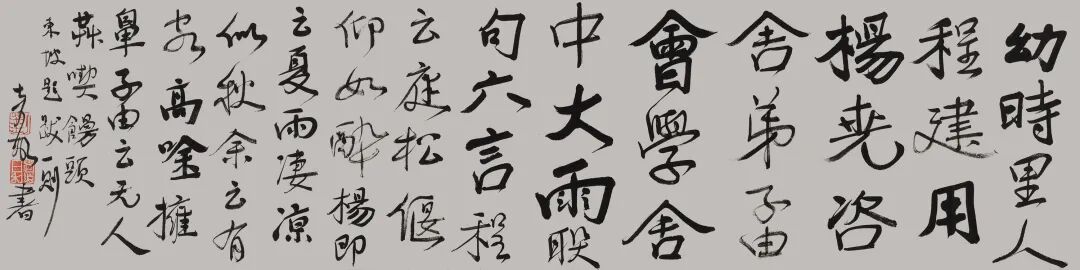 幼時里人
程建用
楊尭咨
舍弟子由
會學舍
中大雨聮
句六言程
云庭松偃
仰如醉楊即
云夏雨凄凉
似秋余云有
客高吟擁
鼻子由云无人
共喫饅頭
東坡題跋一則
書